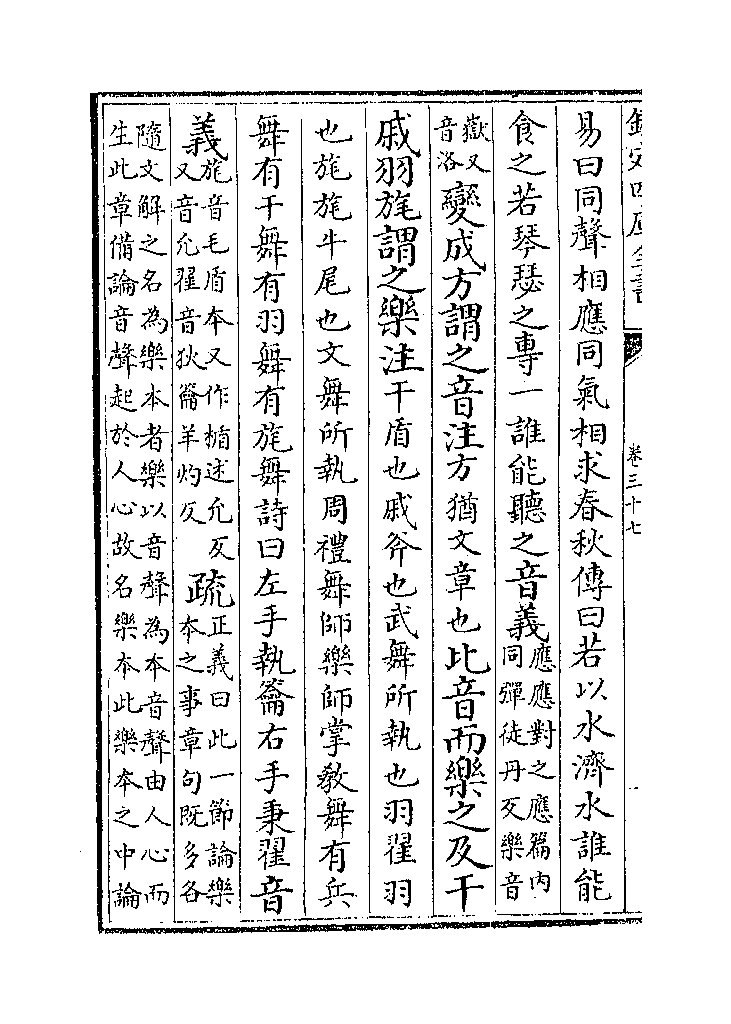 欽定四庫全書 卷三十七
易曰同聲相應同氣相求春秋傳曰若以水濟水誰能
食之若琴瑟之專一誰能聽之音義應應對之應篇内
同彈徒丹反樂音
嶽又
音洛變成方謂之音注方猶文章也比音而樂之及干
戚羽旄謂之樂注干盾也戚斧也武舞所執也羽翟羽
也旄旄牛尾也文舞所執周禮舞師樂師掌敎舞有兵
舞有干舞有羽舞有旄舞詩曰左手執籥右手秉翟音
義旄音毛盾本又作楯述允反
又音允翟音狄籥羊灼反疏正義曰此一節論樂
本之事章句既多各
隨文解之名為樂本者樂以音聲為本音聲由人心而
生此章備論音聲起於人心故名樂本此樂本之中論